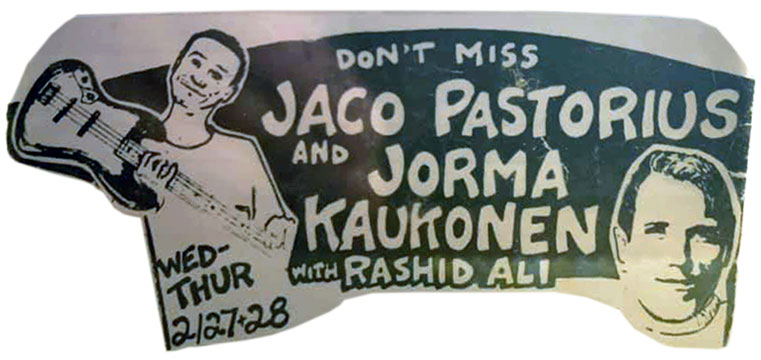 DON'T MISS
JACO PASTORIUS
AND JORMA
KAUKONEN
WITH RASHID ALI
WED-
THUR
2/27+28